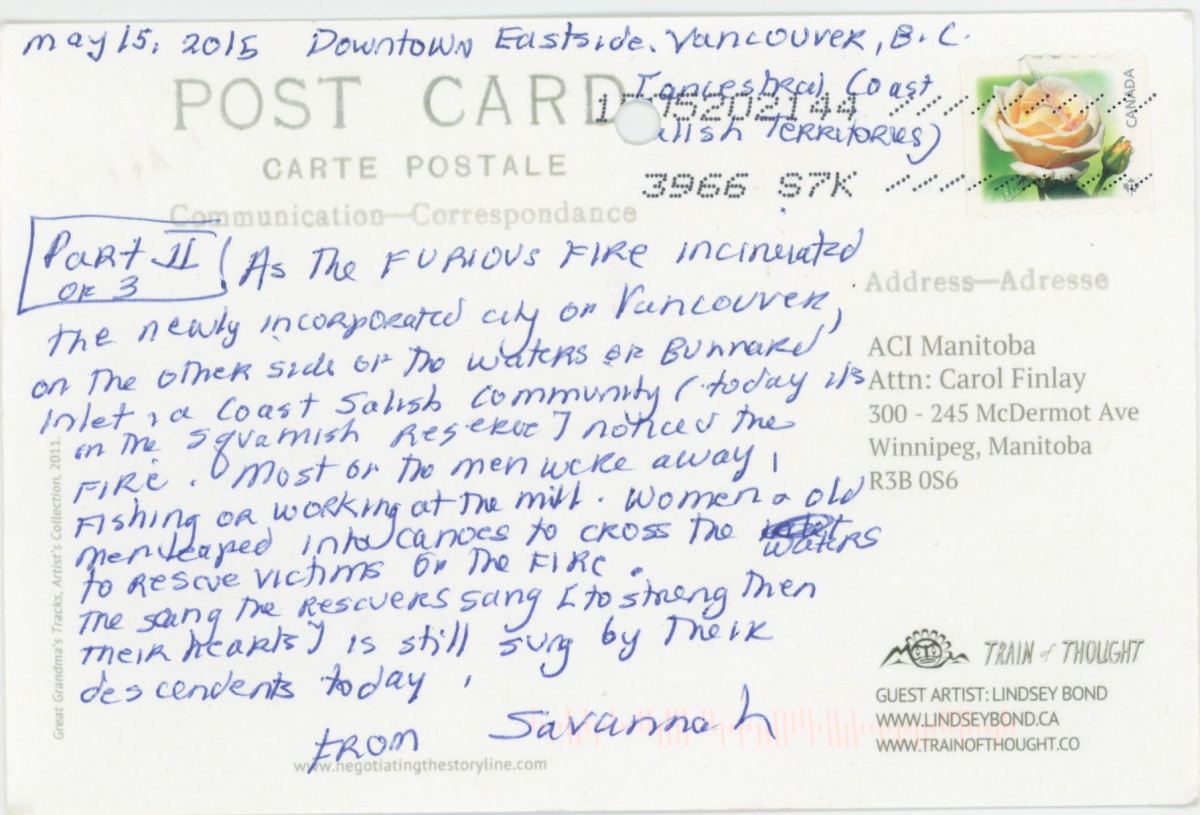 may 15, 2015 Downtown Eastside. Vancouver, B.C.
POST CARD
[ancestral Coast
alish Territories)
CARTE POSTALE
3966 S7K
CANADA
Communication—Correspondance
Part II
of 3
As the FURIOUS FIRE incinerated
the newly incorporated city of Vancouver,
on the other side of the waters of Burrard
Inlet, a Coast Salish community (today its
on the Squamish Reserve] noticed the
FIRE. Most of the men were away,
FISHING or working at the mill. Women & old
men leaped into canoes to cross the waters
to rescue victims of the FIRE.
The song the rescuers sang [to strengthen
their hearts] is still sung by their
descendents today.
From Savannah
www.negotiatingthestoryline.com
Great Grandma's Tracks, Artist's Collection, 2011.
Address—Adresse
ACI Manitoba
Attn: Carol Finlay
300 - 245 McDermot Ave
Winnipeg, Manitoba
R3B 0S6
TRAIN of THOUGHT
GUEST ARTIST: LINDSEY BOND
WWW.LINDSEYBOND.CA
WWW.TRAINOFTHOUGHT.CO